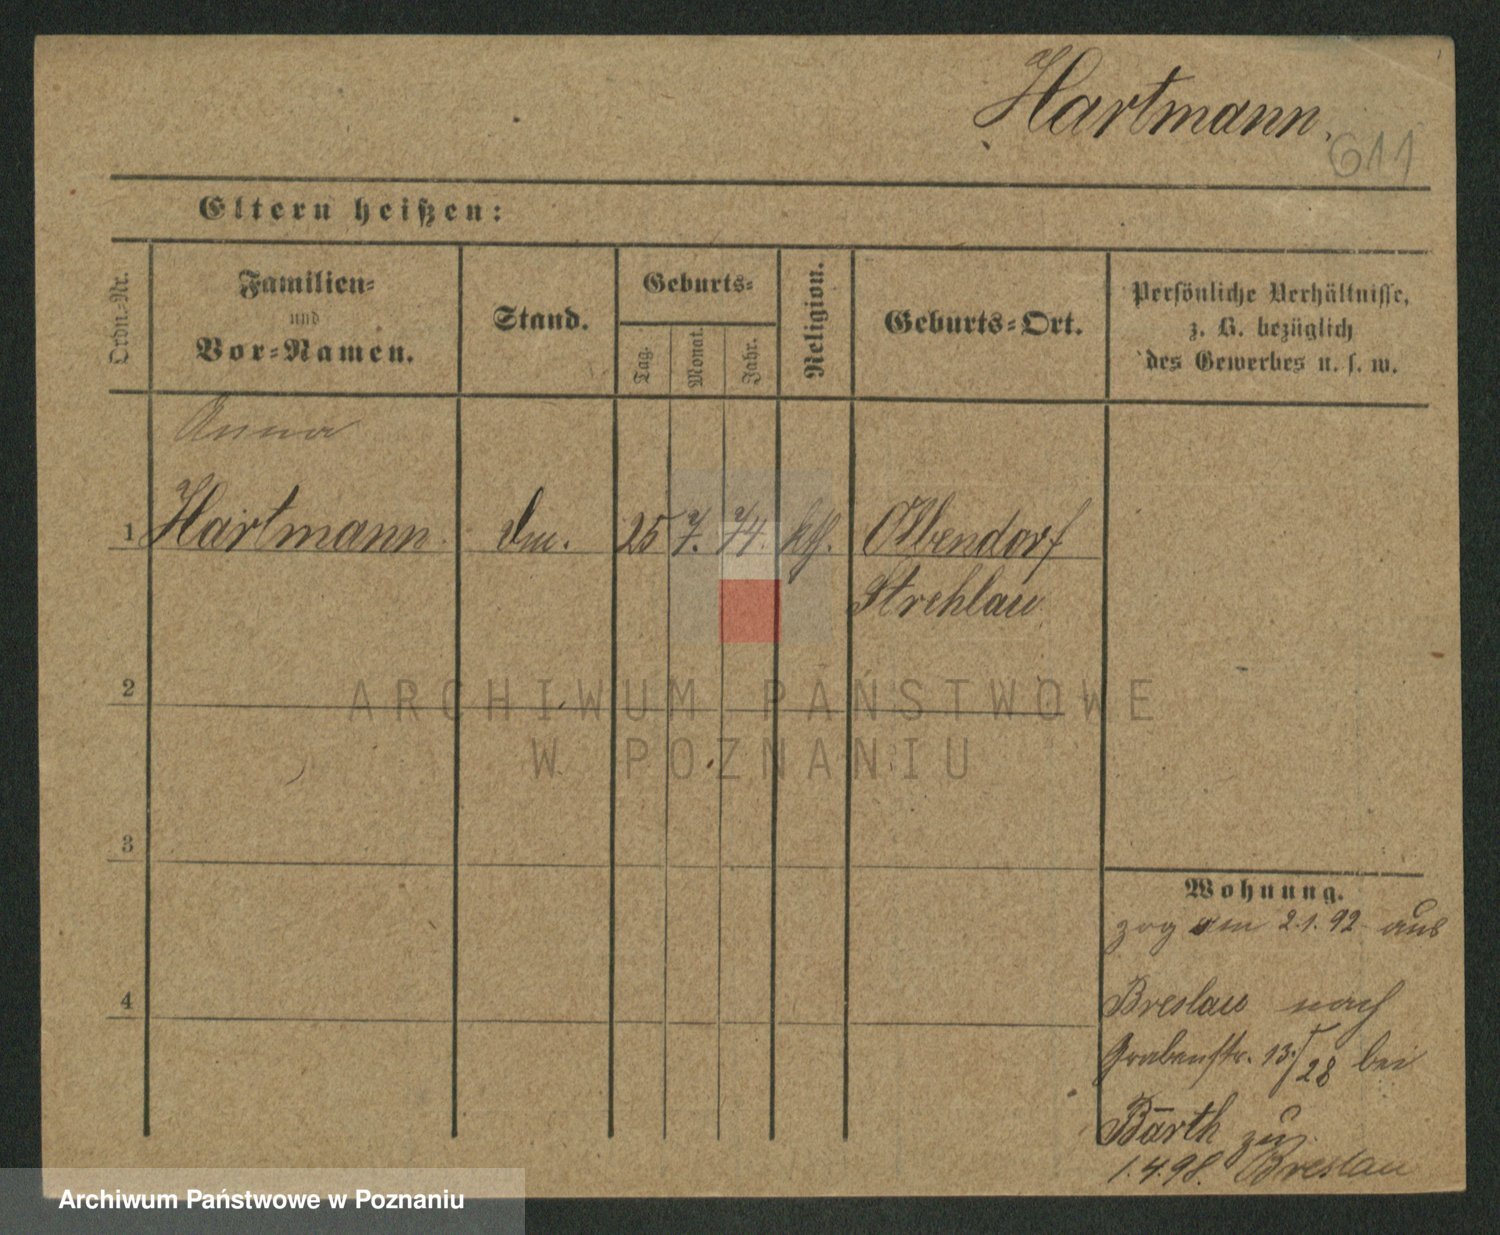 Hartmann.
611
Eltern heißen:
Ordn.-Nr.
Familien-
und
Vor-Namen.
Stand.
Geburts-
Tag.
Monat.
Jahr.
Religion.
Geburts-Ort.
Persönliche Verhältnisse,
z. B. bezüglich
des Gewerbes u. s. w.
Anna
1 Hartmann 25 7. 74. kth. Olbendorf
Strehlau
ARCHIWUM PAŃSTWOWE
W POZNANIU
2
3
4
Wohnung.
zog am 2.1.92 aus
Breslau nach
Grabenstr. 13. I/28 bei
Barth zu
1.4.98. Breslau
Archiwum Państwowe w Poznaniu